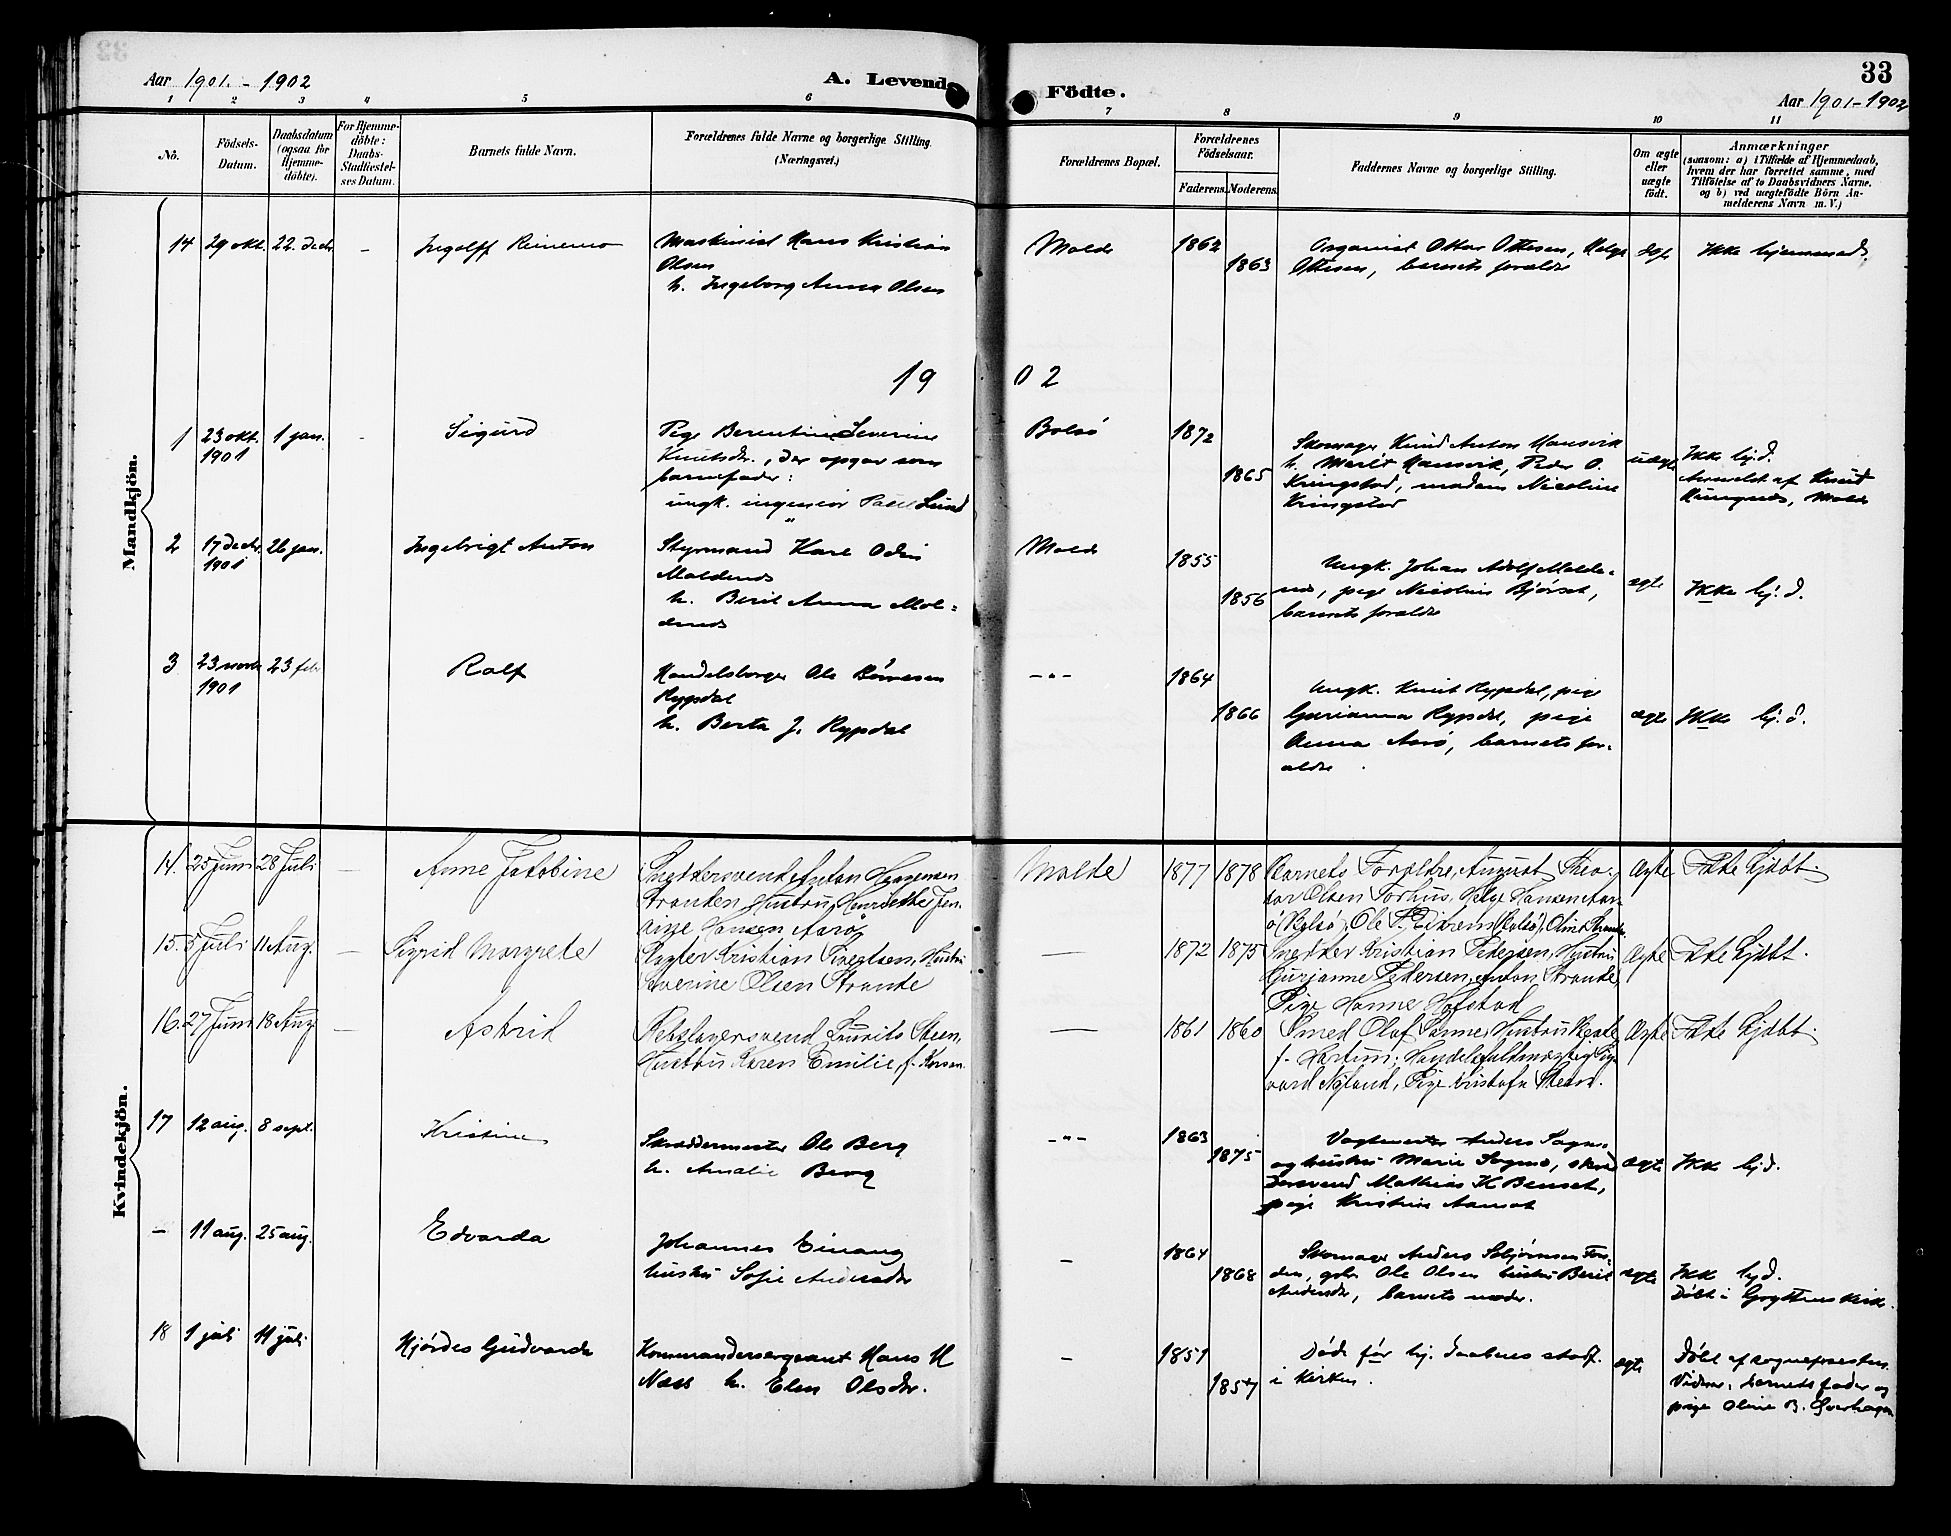 Aar 1901. - 1902
A. Levende
Födte.
33
Aar 1901-1902
1 2 3 4 5 6 7 8 9 10 11
No.
Födsels-
Datum.
Daabsdatum
(ogsaa for
Hjemme-
döbte).
For Hjemme-
döbte:
Daabs-
Stadfæstel-
ses Datum.
Barnets fulde Navn.
Forældrenes fulde Navne og borgerlige Stilling.
(Næringsvei.)
Forældrenes Bopæl.
Forældrenes
Födselsaar.
Faderens. Moderens.
Faddernes Navne og borgerlige Stilling.
Om ægte
eller
uægte
födt.
Anmærkninger
(saasom: a) i Tilfælde af Hjemmedaab,
hvem der har forrettet samme, med
Tilföielse af to Daabsvidners Navne.
og b) ved uegtefödte Börn An-
melderens Navn m. V.)
Mandkjön.
14 29 okt. 22. decbr - Ingolff
Maskinist Hans Kristian
Olsen
h. Ingeborg Anna Olsen
Molde 1862 1863
Organist Ottar Ottesen, Helga
Ottesen, barnets forældre
Ikke hjemmed.
19 02
1 23 okt. 1901 1 jan. - Sigurd
Pige Berentine Severine
Knutsdr., der opgav som
barnefader:
ungk. ingeniør Paul Lund
Bolsö 1872 1865
Skomager Knud Anton Hansvik
h. Marit Hansvik, Peder O.
Kringstad, madam Nicoline
Kringstad
uægte
Ikke hj.d.
Anmeldt af Knut
Molde
2 17 decbr. 1901 26 jan. Ingebrigt Anton
Styrmand Karl Odin
Moldenes
h. Berit Anna Mol=
denes
Molde 1855 1856
Ungk. Johan Adolf Molde-
nes, pige Nicoline Bjørset,
barnets forældre
ægte Ikke hj. d.
3 23 novbr 1901 23 feb Rolf
Handelsborger Ole
Rypdal
h. Berta J. Rypdal
-"- 1864 1866
Ungk. Knut Rypdal, pige
Gurianna Rypdal, pige
Anna Arö, barnets for-
ældre.
ægte Ikke hj. d.
Kvindekjön.
14. 25 Juni 28 Juli - Anne Jakobine
Snedkersvend Anton
Stranden, Hustru Henrikke Jen-
sine Hansen Aarø
Molde 1877 1878
Barnets Forældre, August Theo-
dor Olsen Forhus, Helge Hansen Aar-
ö (Bolsø), Ole P. Eikrem (Bolsø), Oline Strande.
Ægte Ikke Hjdbt.
15. 5 Juli 11 Aug. - Sigrid Margrete
Slagter Kristian Sivertsen, Hustru
Severine Olsen Strande
- 1872 1875
Snedker Kristian Pedersen, Hustru
Gurianne Pedersen, Anton Strande,
Pige Hanne Hofstad
Ægte Ikke Hjdbt.
16. 27 Juni 18 Aug - Astrid
Rebslagersvend Laurits Steen,
Hustru Karen Emilie f. Korsen.
- 1861 1860
Smed Olaf Sanne, Hustru Beate
f. Hartum; Handelsfuldmægtig Sig-
vard Nyland, Pige Kristofa Steen.
Ægte Ikke Hjdbt.
17 12 aug. 8 sept. Kristine
Skræddermester Ole Berg
h. Amalie Berg
-"- 1863 1875
Vagtmester Anders Sogn-
og hustru Marie Sognes, skræd
dersvend Mathias K Benset,
pige Kristine Aanset
ægte Ikke hj.d.
- 11 aug. 25 aug. Edvarda
Johannes Einang
hustru Sofie Andersdr
- 1864 1868
Skomager Anders
den, gbr. Ole Olsen hustru Berit
Andersdr, barnets moder.
ægte Ikke hj.d.
Døbt i Gryttens kirke.
18 1 juli 11 juli Hjördes Gudvarda
Kommandersergeant Hans M
Næss h. Elen Olsdr.
- 1851 1857
Døde før hj. daabens stadf.
i kirken.
ægte
Døbt af sognepresten.
Vidner: barnets fader og
pige Oline B.